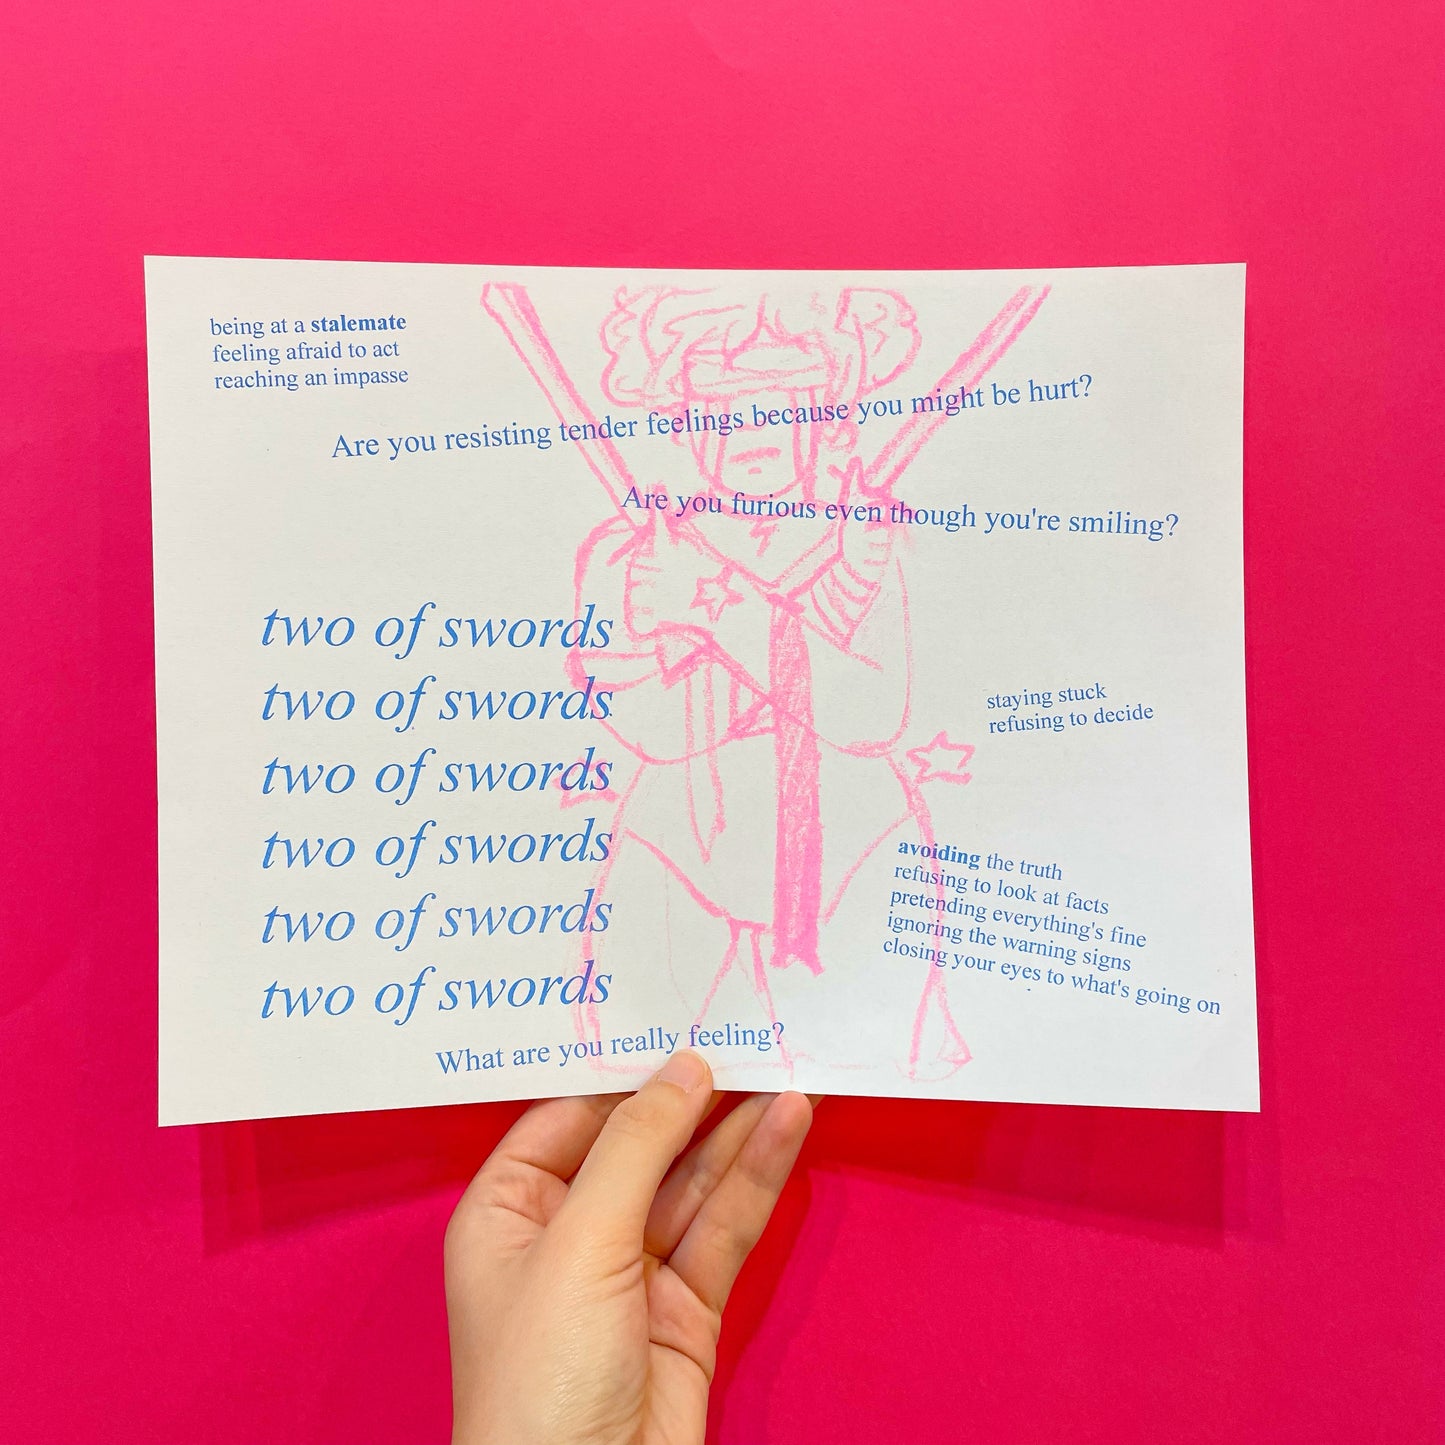 being at a stalemate
feeling afraid to act
reaching an impasse
Are you resisting tender feelings because you might be hurt?
Are you furious even though you're smiling?
two of swords
two of swords
two of swords
two of swords
two of swords
two of swords
staying stuck
refusing to decide
avoiding the truth
refusing to look at facts
pretending everything's fine
ignoring the warning signs
closing your eyes to what's going on
What are you really feeling?